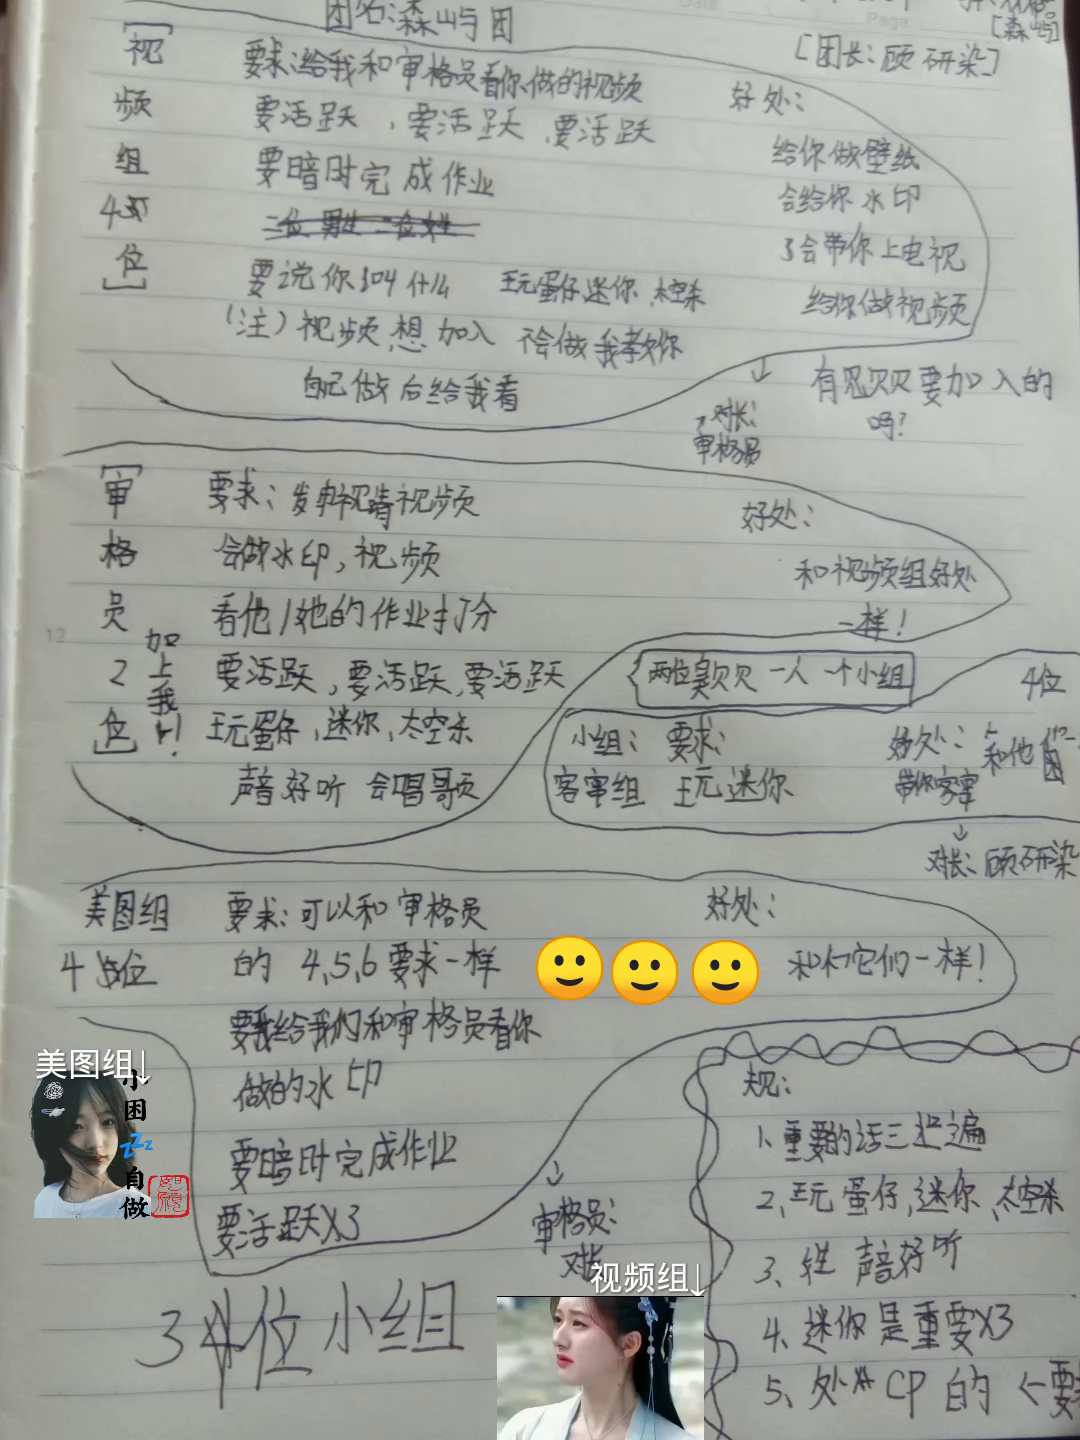 团名:森屿团
[森屿]
[团长:顾研染]
Page:
[视频组4位]
要求:给我和审格员看你做的视频
要活跃,要活跃,要活跃
要暗时完成作业
二位男生二位女生
要说你304什么 王元蛋仔迷你,太空杀
(注)视频想加入 不会做我教你
自己做后给我看
好处:
给你做壁纸
会给你水印
3会带你上电视
给你做视频
↓ 有见贝贝要加入的
吗?
对长:
审格员
[审格员2位]
加上我!
要求:发申视请视频
会做水印,视频
看他/她的作业打分
要活跃,要活跃,要活跃
王元蛋仔,迷你,太空杀
声音好听 会唱哥页
好处:
和视频组好处
一样!
两位臭贝贝 一人一个小组
4位
小组: 要求:
客审组 王元迷你
好处: 和他们一
带你客审
↓
对长:顾研染
12
美图组
4位
要求:可以和审格员
的 4,5,6要求一样
要给我们和审格员看你
做的水印
要暗时完成作业
要活跃X3
好处:
和它们一样!
↓
审格员:
对长
3 位小组
规:
1、重要的话三遍
2、王元蛋仔,迷你、太空杀
3、 声音好听
4、迷你是重要X3
5、处 CP的 <要
美图组↓
小困
zzz
自做
视频组↓